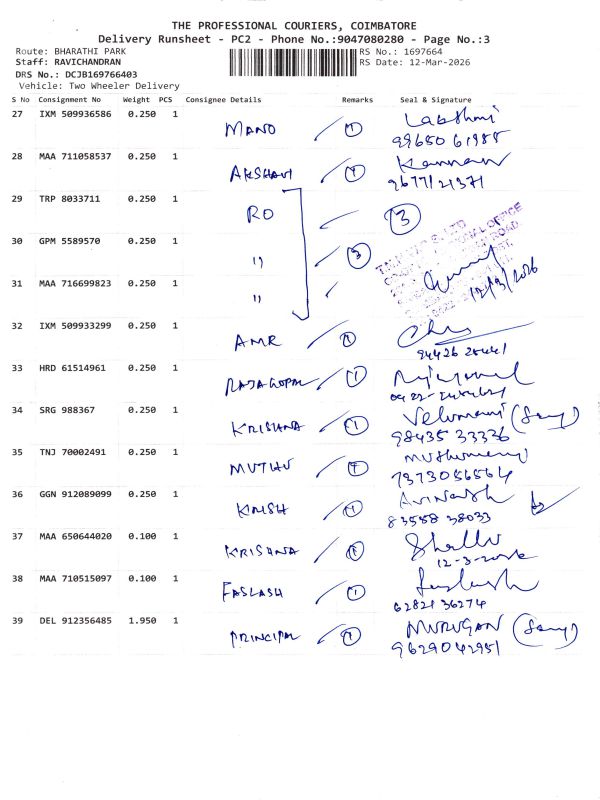 THE PROFESSIONAL COURIERS, COIMBATORE
Delivery Runsheet - PC2 - Phone No.:9047080280 - Page No.:3
Route: BHARATHI PARK RS No.: 1697664
Staff: RAVICHANDRAN RS Date: 12-Mar-2026
DRS No.: DCJB169766403
Vehicle: Two Wheeler Delivery
S No Consignment No Weight PCS Consignee Details Remarks Seal & Signature
27 IXM 509936586 0.250 1 MANO 1 Lakshmi
99650 61988
28 MAA 711058537 0.250 1 AKSHAVI 1 Kannan
9677121371
29 TRP 8033711 0.250 1 RO 3
30 GPM 5589570 0.250 1 " 3
31 MAA 716699823 0.250 1 " 12/3/2026
32 IXM 509933299 0.250 1 AMR 1
94426 25441
33 HRD 61514961 0.250 1 RAJAGOPAL 1
34 SRG 988367 0.250 1 KRISHNA 1 Velumani
98435 33336
35 TNJ 70002491 0.250 1 MUTHU 1
7373056564
36 GGN 912089099 0.250 1 KRISH 1 Avinash
83558 38033
37 MAA 650644020 0.100 1 KRISHNA 1
12-3-2026
38 MAA 710515097 0.100 1 FASLASH 1
62821 36274
39 DEL 912356485 1.950 1 PRINCIPAL 1 MURUGAN
9629042951